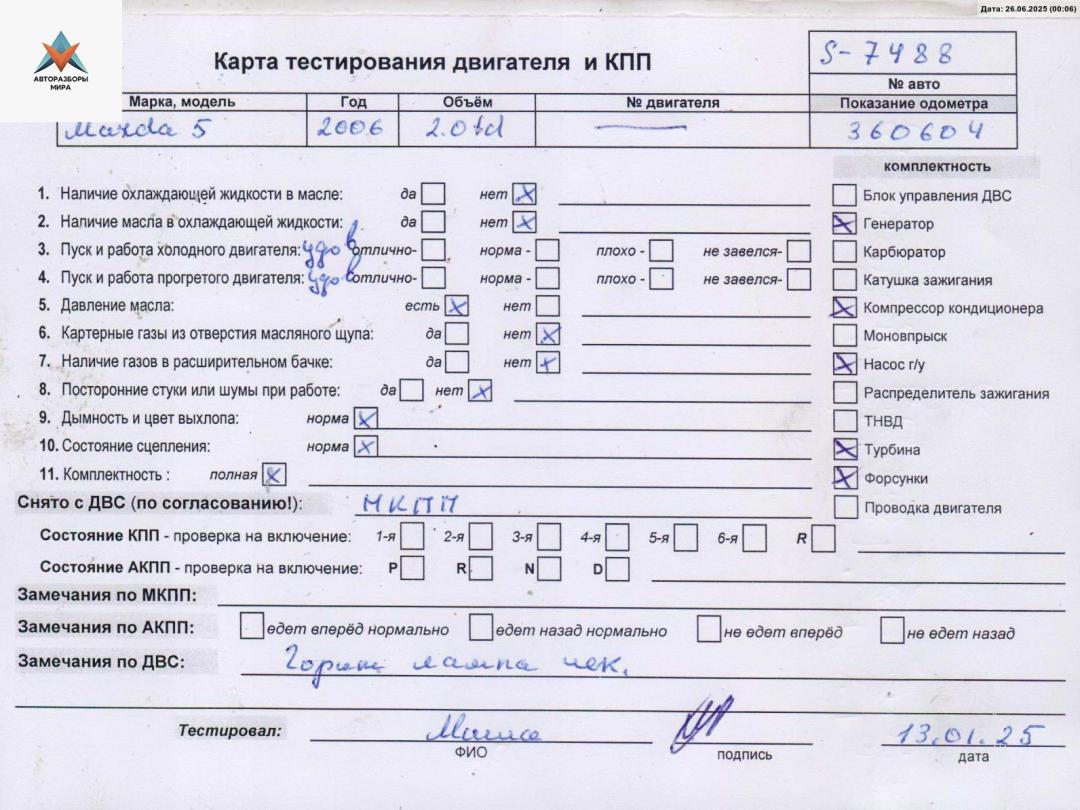 Дата: 26.06.2025 (00:06)
АВТОРАЗБОРЫ
МИРА
Карта тестирования двигателя и КПП
S-7488
№ авто
Марка, модель Год Объём № двигателя Показание одометра
Mazda 5 2006 2.0td — 360604
комплектность
1. Наличие охлаждающей жидкости в масле: да нет X
Блок управления ДВС
2. Наличие масла в охлаждающей жидкости: да нет X
X Генератор
3. Пуск и работа холодного двигателя: удов отлично- норма - плохо - не завелся-
Карбюратор
4. Пуск и работа прогретого двигателя: удов отлично- норма - плохо - не завелся-
Катушка зажигания
5. Давление масла: есть X нет
X Компрессор кондиционера
6. Картерные газы из отверстия масляного щупа: да нет X
Моновпрыск
7. Наличие газов в расширительном бачке: да нет X
X Насос г/у
8. Посторонние стуки или шумы при работе: да нет X
Распределитель зажигания
9. Дымность и цвет выхлопа: норма X
ТНВД
10. Состояние сцепления: норма X
X Турбина
11. Комплектность : полная X
X Форсунки
Снято с ДВС (по согласованию!): МКПП
Проводка двигателя
Состояние КПП - проверка на включение: 1-я 2-я 3-я 4-я 5-я 6-я R
Состояние АКПП - проверка на включение: P R N D
Замечания по МКПП:
Замечания по АКПП: едет вперёд нормально едет назад нормально не едет вперёд не едет назад
Замечания по ДВС: Горит лампа чек.
Тестировал: 13.01.25
ФИО подпись дата